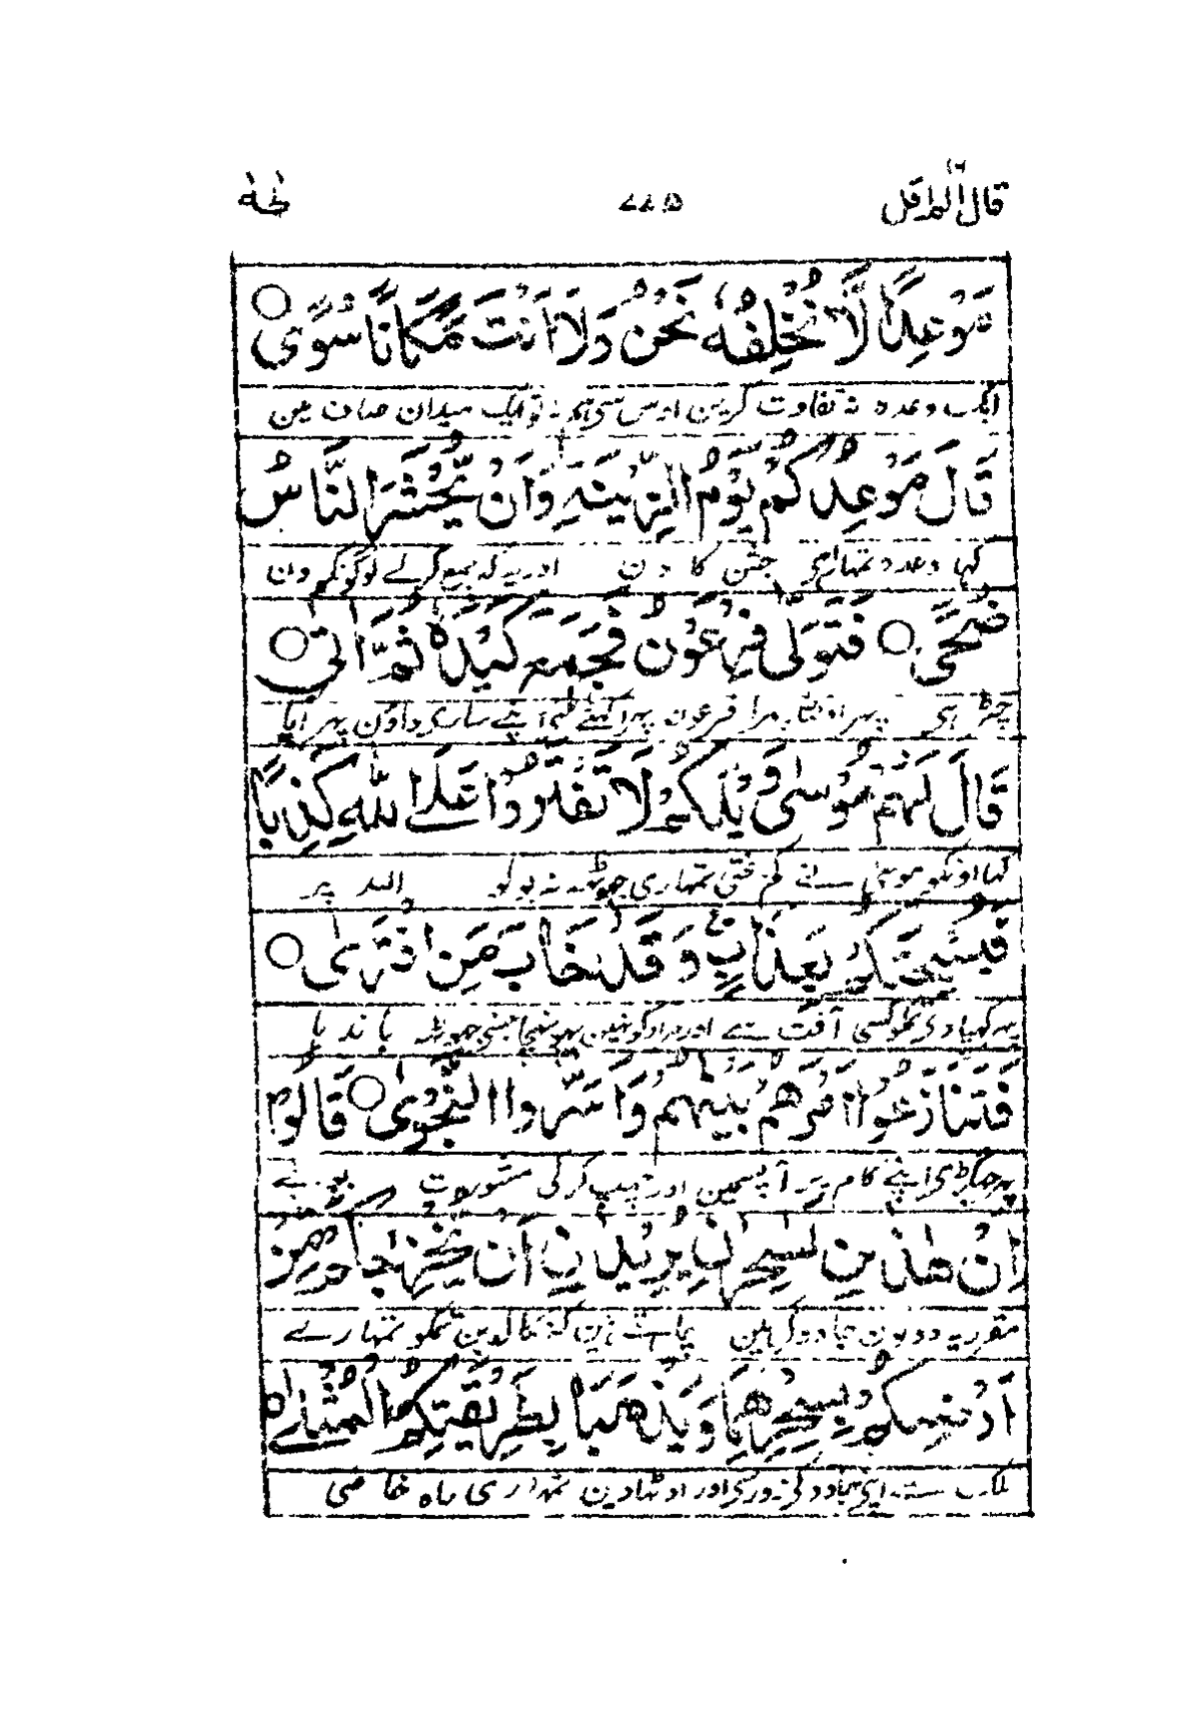 قال الم اقل ١٦ ٧٧٥ طٰهٰ
مَوْعِدًا لَّا نُخْلِفُهٗ نَحْنُ وَلَا اَنْتَ مَكَانًا سُوًى ○
ایک وعدہ نہ تفاوت کرین اوس سی ہم نہ تو ایک میدان صاف مین
قَالَ مَوْعِدُكُمْ يَوْمُ الزِّيْنَةِ وَاَنْ يُّحْشَرَ النَّاسُ
کہا وعدہ تمہاری جشن کا دن اور یہ کہ جمع کرلے لوگونکو دن
ضُحًى ○ فَتَوَلّٰى فِرْعَوْنُ فَجَمَعَ كَيْدَهٗ ثُمَّ اَتٰى ○
چڑہی پہر اولٹا پہرا فرعون پہر اکٹھے کئی اپنے ساری داون پہر آیا
قَالَ لَهُمْ مُّوْسٰى وَيْلَكُمْ لَا تَفْتَرُوْا عَلَى اللّٰهِ كَذِبًا
کہا اونکو موسی نے کم بختی تمہاری جھوٹ نہ بولو اللہ پر
فَيُسْحِتَكُمْ بِعَذَابٍ وَقَدْ خَابَ مَنِ افْتَرٰى ○
پہر کہپادی تمکو کسی آفت سے اور مراد کو نہین پہونچا جسنی جھوٹ باندہا
فَتَنَازَعُوْا اَمْرَهُمْ بَيْنَهُمْ وَاَسَرُّوا النَّجْوٰى ○ قَالُوْا
پہر جھگڑی اپنے کام پر آپسمین اور چہپ کر کی مشورت بولے
اِنْ هٰذٰنِ لَسٰحِرٰنِ يُرِيْدٰنِ اَنْ يُّخْرِجَاكُمْ مِّنْ
مقرر یہ دونون جادوگر ہین چاہتے ہین کہ نکالدین تمکو تمہارے
اَرْضِكُمْ بِسِحْرِهِمَا وَيَذْهَبَا بِطَرِيْقَتِكُمُ الْمُثْلٰى
ملک سے اپنی جادو کی زور سی اور اوٹہادین تمہاری راہ خاصی